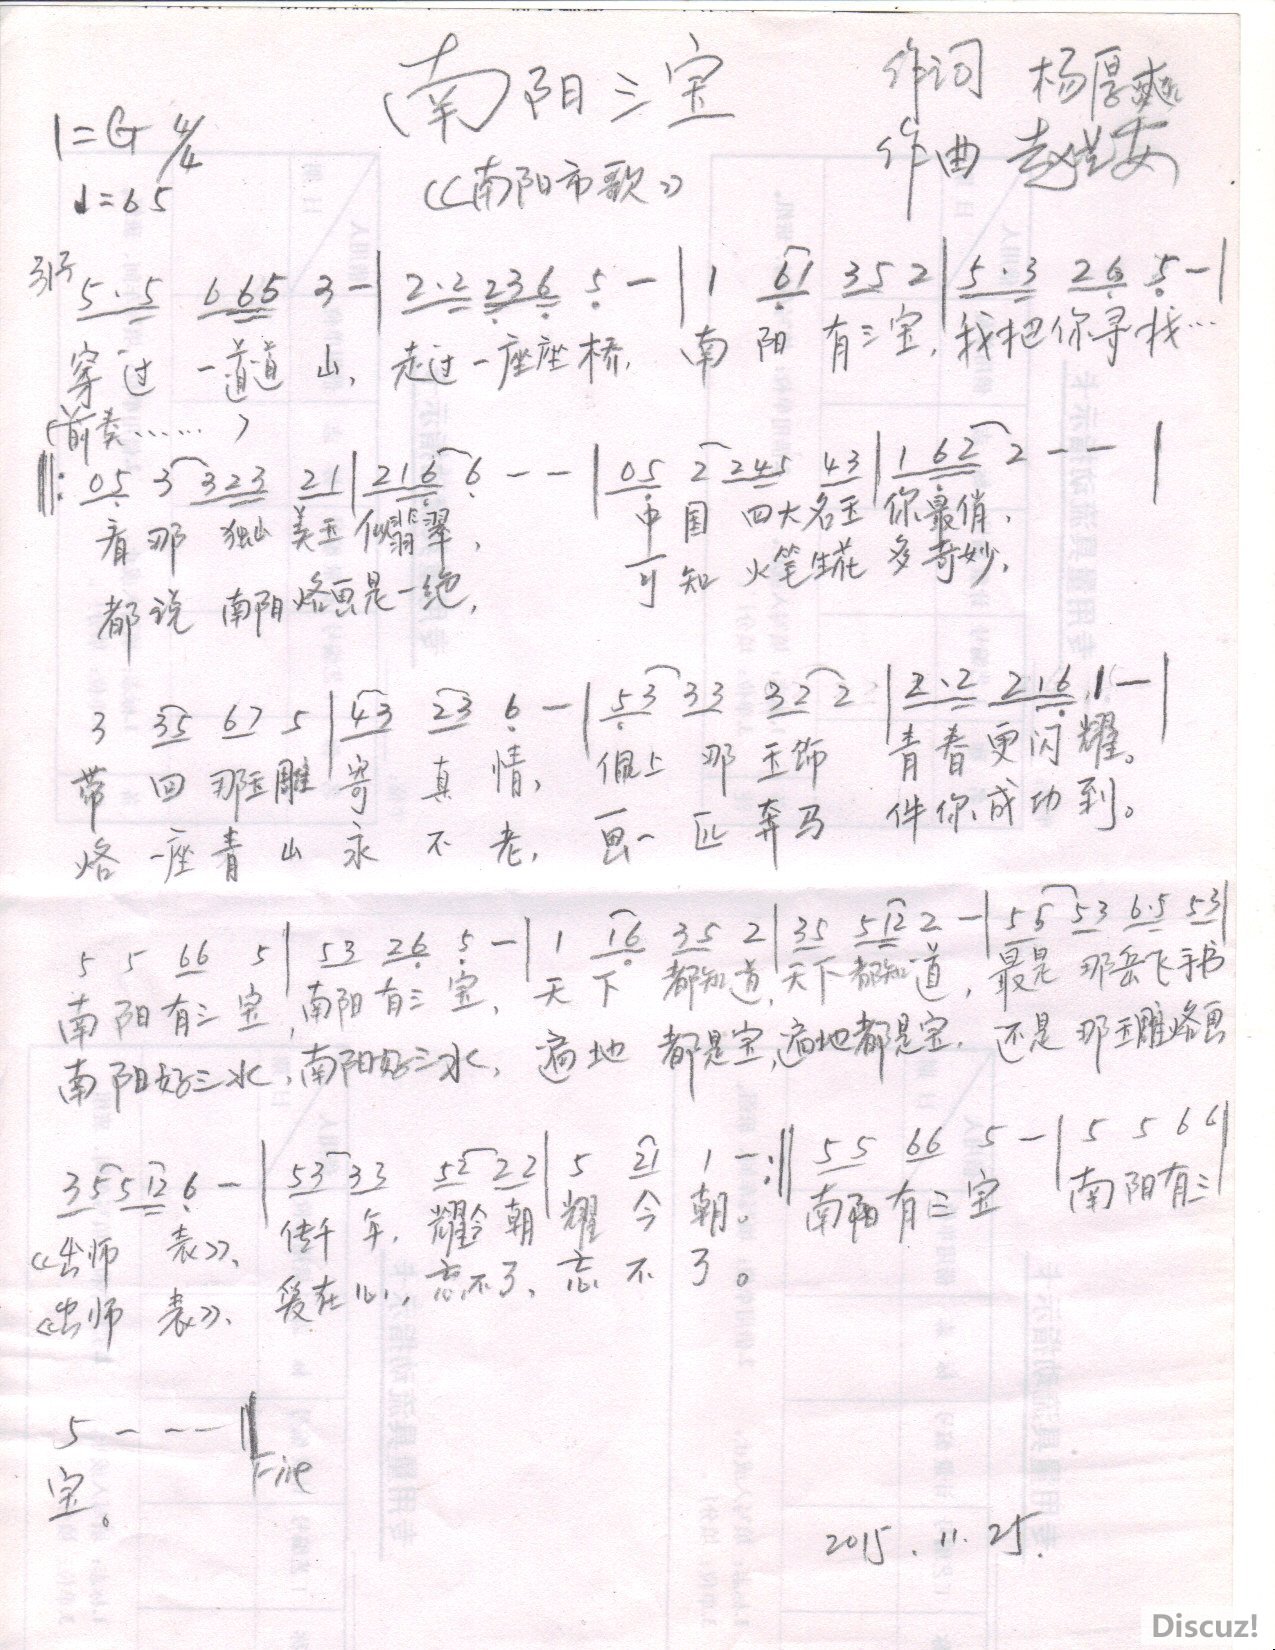 南阳三宝
作词 杨厚爽
1=G 4/4
作曲
♩=65
《南阳市歌》
引子 5·5 6 665 3 - | 2·2 236 5 - | 1 61 35 2 | 5·3 26 5 - |
穿过一道道山，走过一座座桥，南阳有三宝，我把你寻找…
(前奏……)
‖: 05 3 323 21 | 216 6 - - | 05 2 245 43 | 1 62 2 - - |
看那独山美玉似翡翠，中国四大名玉你最俏，
都说南阳烙画是一绝，可知火笔生花多奇妙，
3 35 67 5 | 43 23 6 - | 53 33 32 2 | 2·2 216 1 - |
带回那玉雕寄真情，佩上那玉饰青春更闪耀。
烙一座青山永不老，画一匹奔马伴你成功到。
5 5 66 5 | 53 26 5 - | 1 16 35 2 | 35 512 2 - | 55 53 6·5 53 |
南阳有三宝，南阳有三宝，天下都知道，天下都知道，最是那岳飞手书
南阳好三水，南阳好三水，遍地都是宝，遍地都是宝，还是那玉雕烙画
35 512 6 - | 53 33 52 22 | 5 21 1 - :‖ 55 66 5 - | 5 5 6 6 |
《出师表》、传千年，耀今朝耀今朝。南阳有三宝南阳有三
《出师表》、爱在心，忘不了、忘不了。
5 - - - ‖
宝。 Fine
2015.11.25.
Discuz!